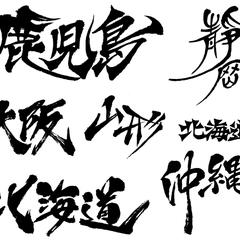 鹿児島
大阪
山形
北海道
北海道
沖縄